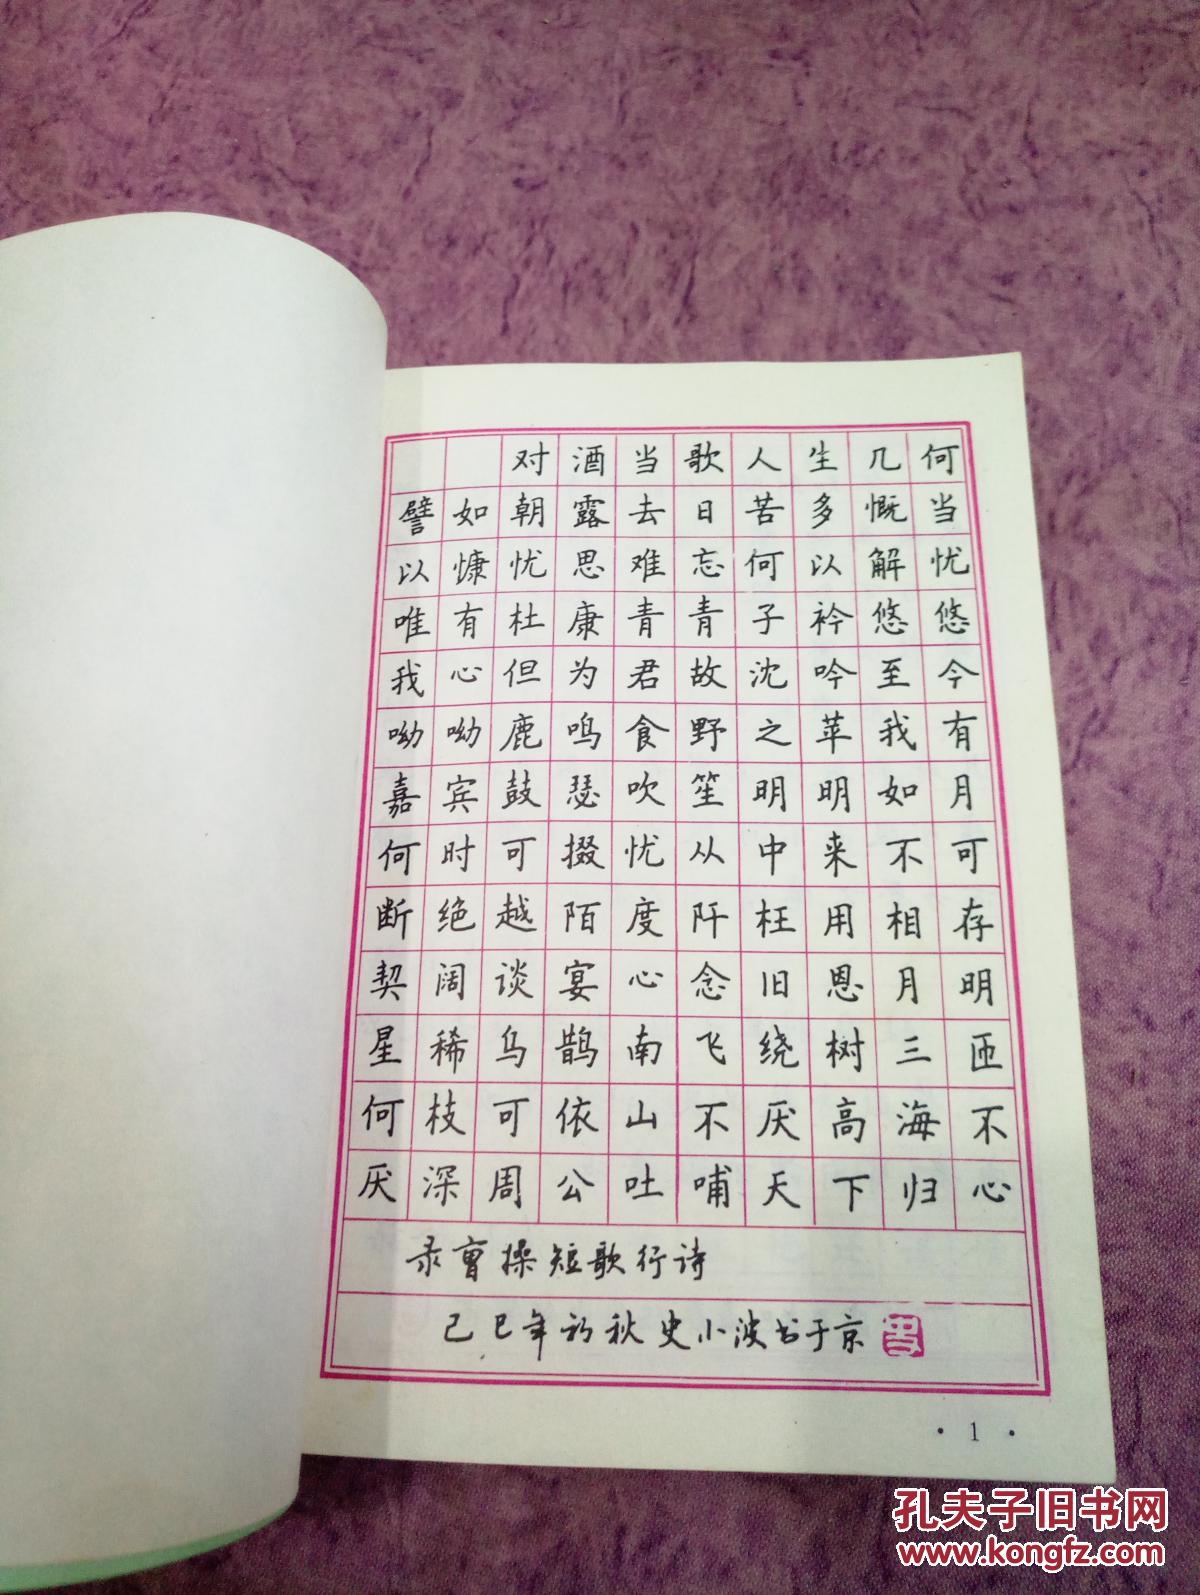 对酒当歌人生几何
譬如朝露去日苦多慨当
以慷忧思难忘何以解忧
唯有杜康青青子衿悠悠
我心但为君故沈吟至今
呦呦鹿鸣食野之苹我有
嘉宾鼓瑟吹笙明明如月
何时可掇忧从中来不可
断绝越陌度阡枉用相存
契阔谈宴心念旧恩月明
星稀乌鹊南飞绕树三匝
何枝可依山不厌高海不
厌深周公吐哺天下归心
录曹操短歌行诗
己巳年初秋史小波书于京
· 1 ·
孔夫子旧书网
www.kongfz.com